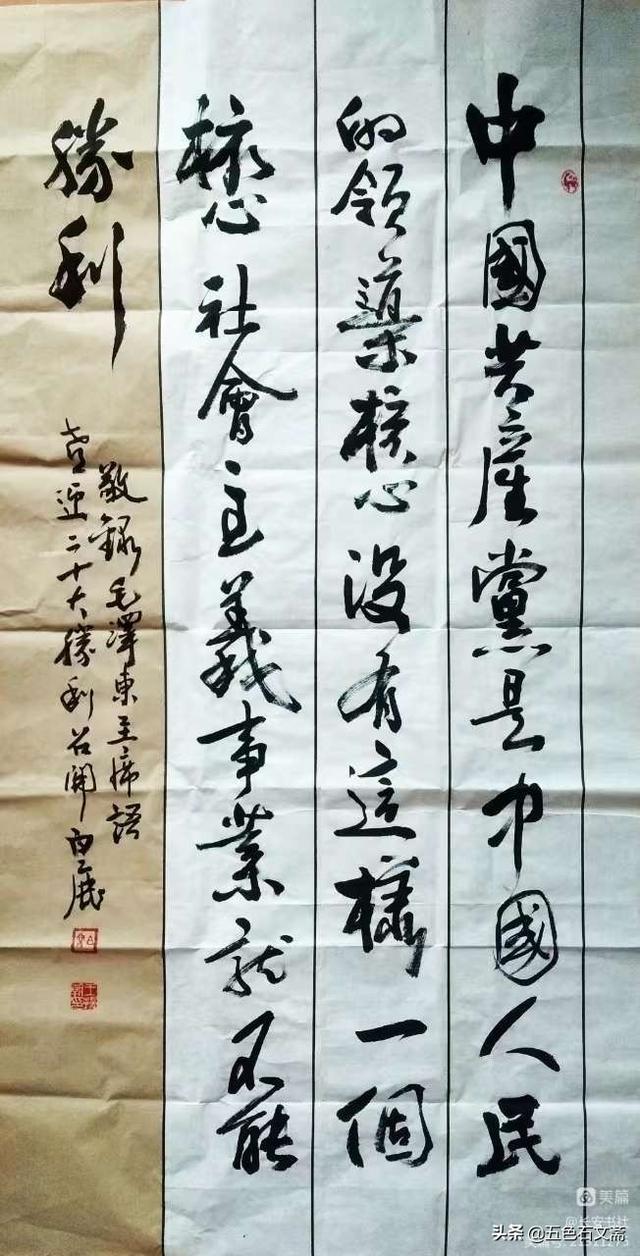 中國共產黨是中國人民
的領導核心没有這樣一個
核心社會主義事業就不能
勝利
敬錄毛澤東主席語
喜迎二十大勝利召開
美篇
@长安书社
头条 @五色石文斋